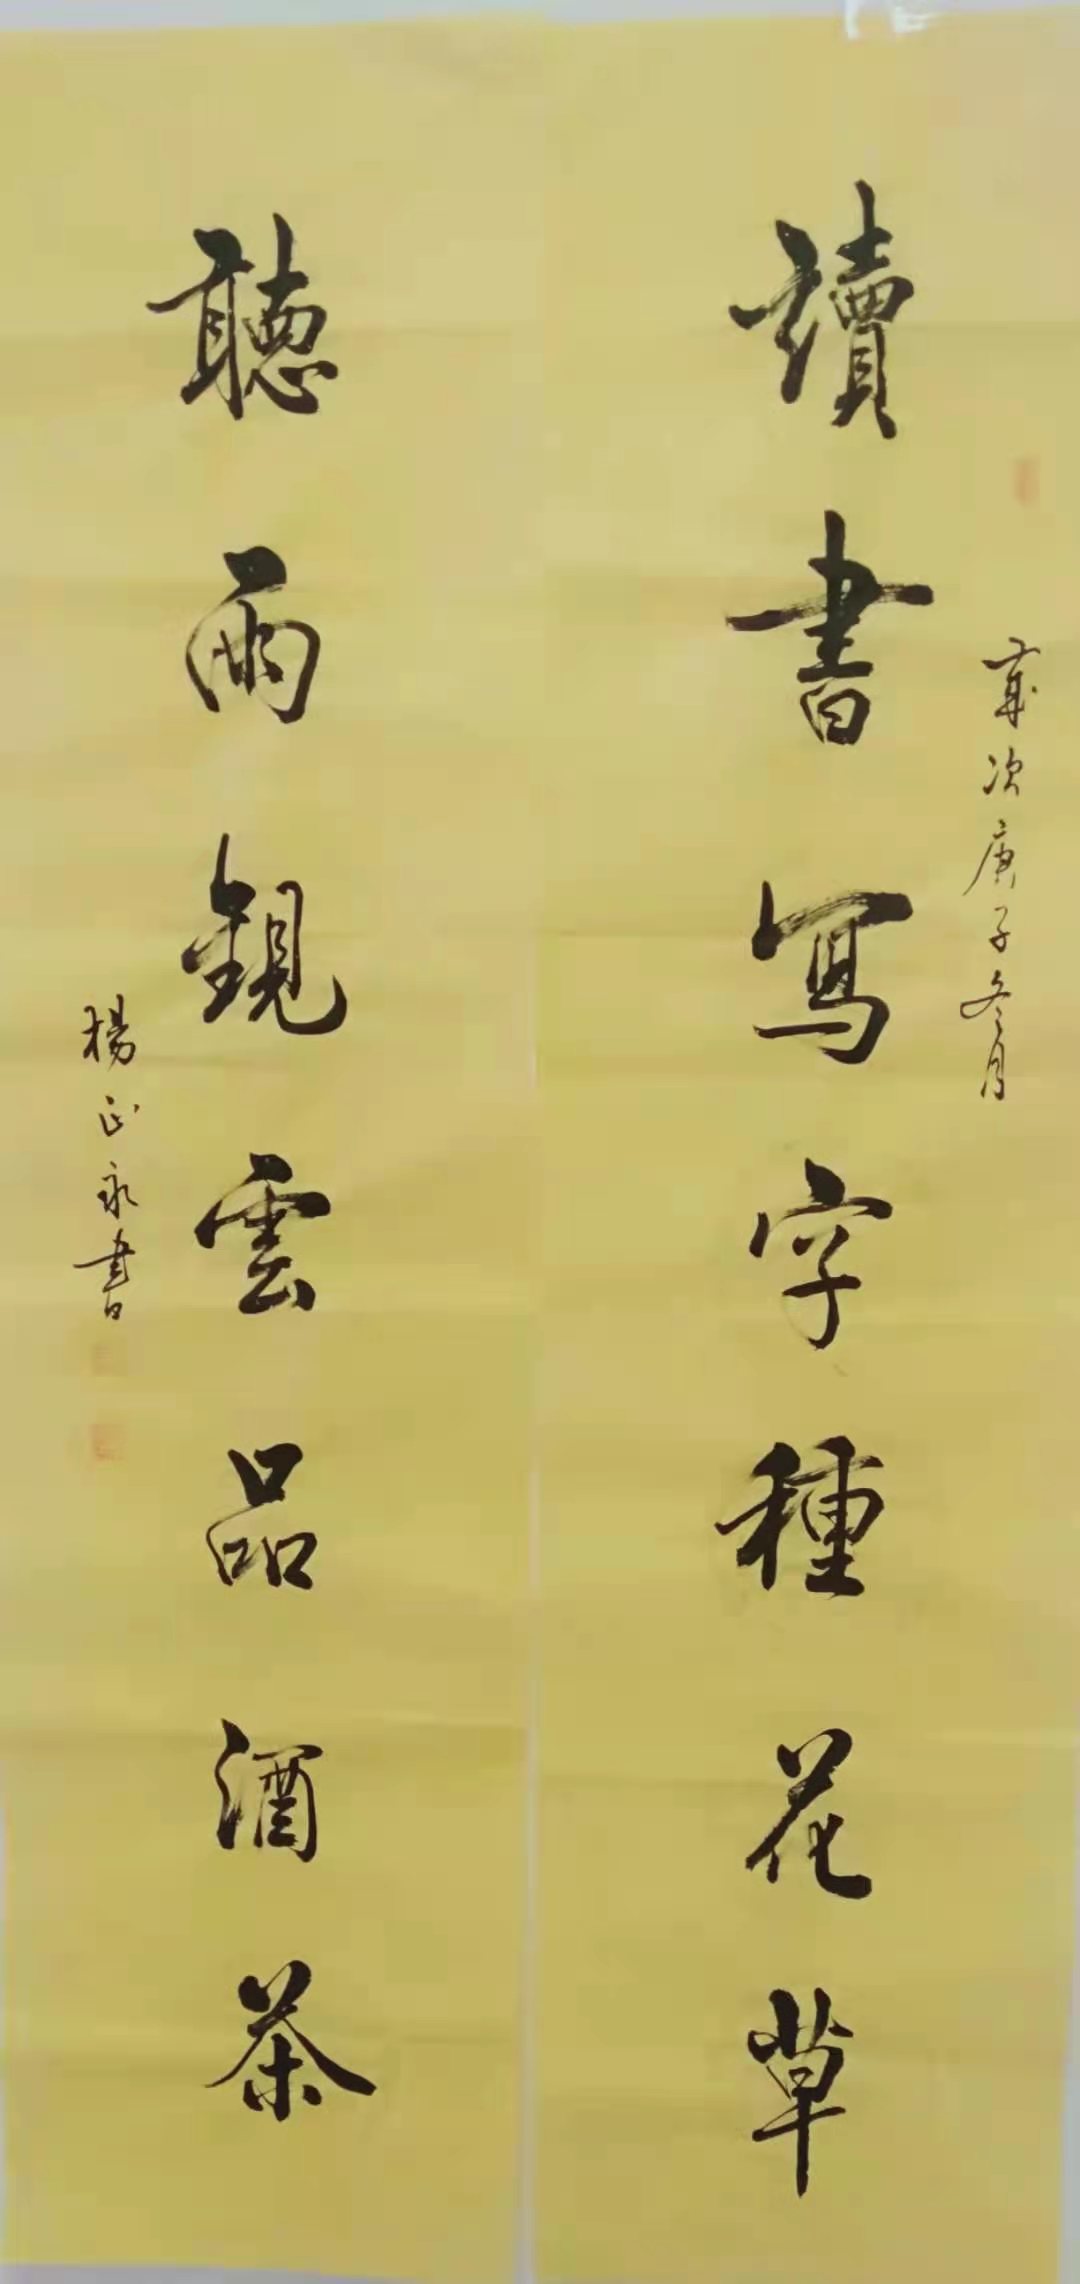 讀書寫字種花草
歲次庚子冬月
聽雨觀雲品酒茶
楊正永書